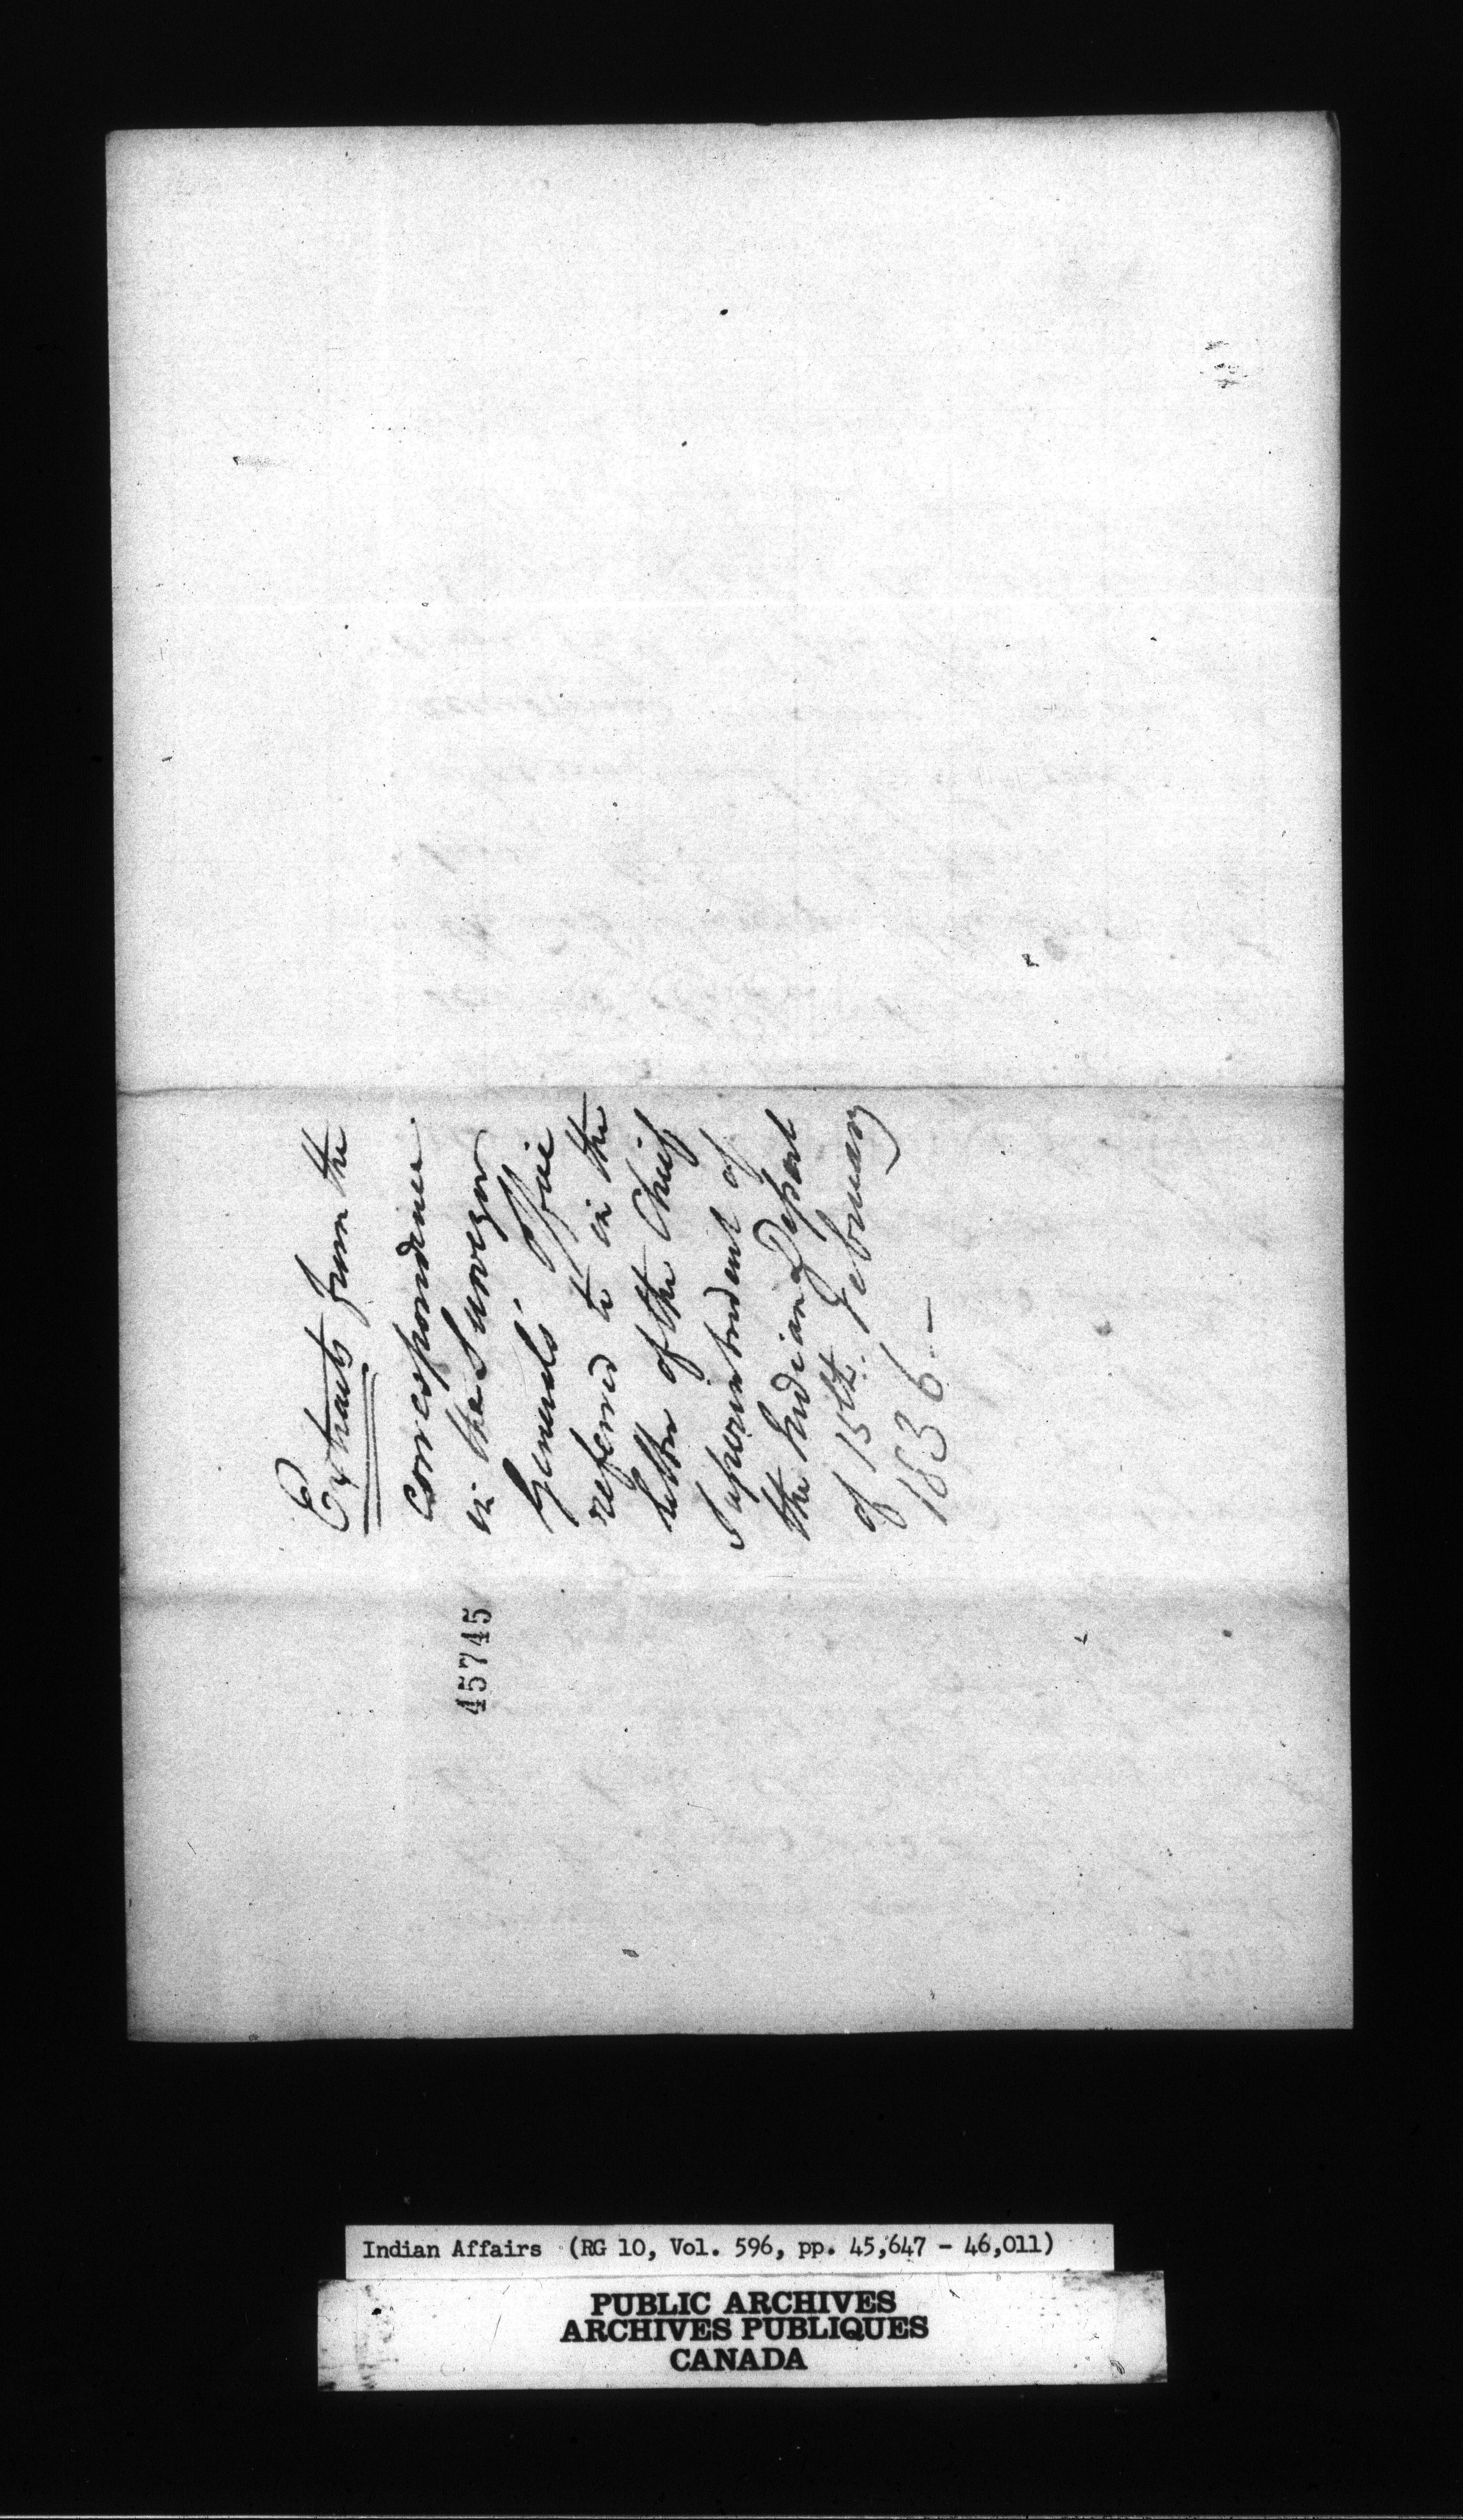 Extracts from the
correspondence
in the Surveyor
Generals' Office
referred to in the
letter of the Chief
Superintendent of
the Indian Depart
of 15th. February
1836.—
45745
Indian Affairs (RG 10, Vol. 596, pp. 45,647 - 46,011)
PUBLIC ARCHIVES
ARCHIVES PUBLIQUES
CANADA